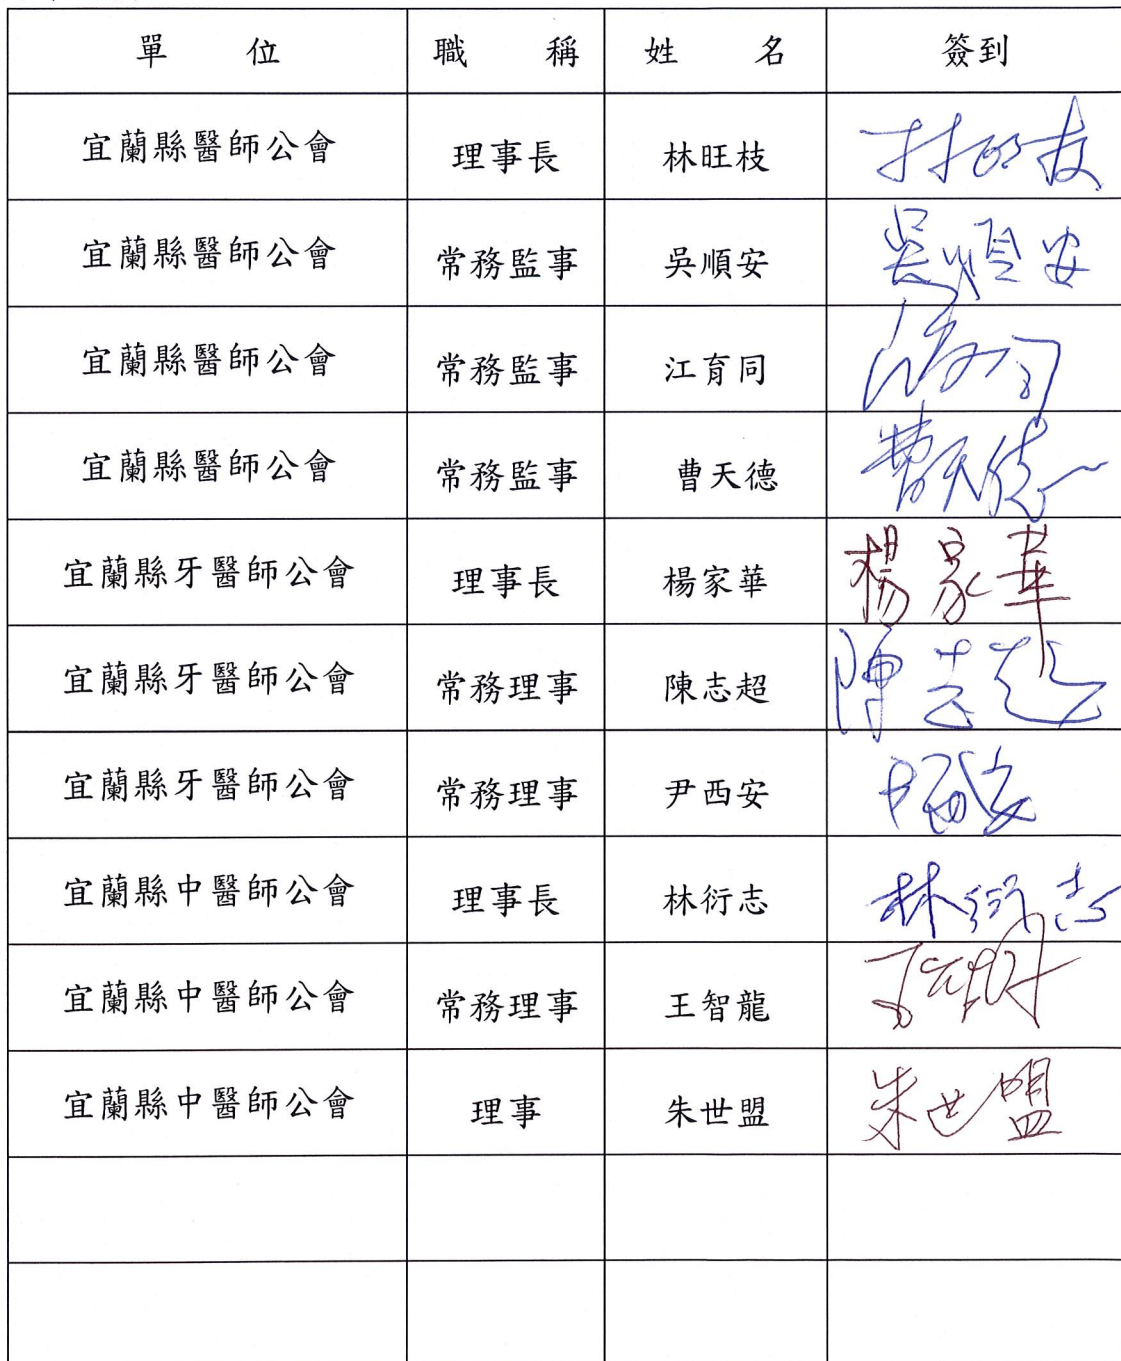 單位 職稱 姓名 簽到
宜蘭縣醫師公會 理事長 林旺枝 林旺枝
宜蘭縣醫師公會 常務監事 吳順安 吳順安
宜蘭縣醫師公會 常務監事 江育同
宜蘭縣醫師公會 常務監事 曹天德 曹天德
宜蘭縣牙醫師公會 理事長 楊家華 楊家華
宜蘭縣牙醫師公會 常務理事 陳志超 陳志超
宜蘭縣牙醫師公會 常務理事 尹西安
宜蘭縣中醫師公會 理事長 林衍志 林衍志
宜蘭縣中醫師公會 常務理事 王智龍
宜蘭縣中醫師公會 理事 朱世盟 朱世盟